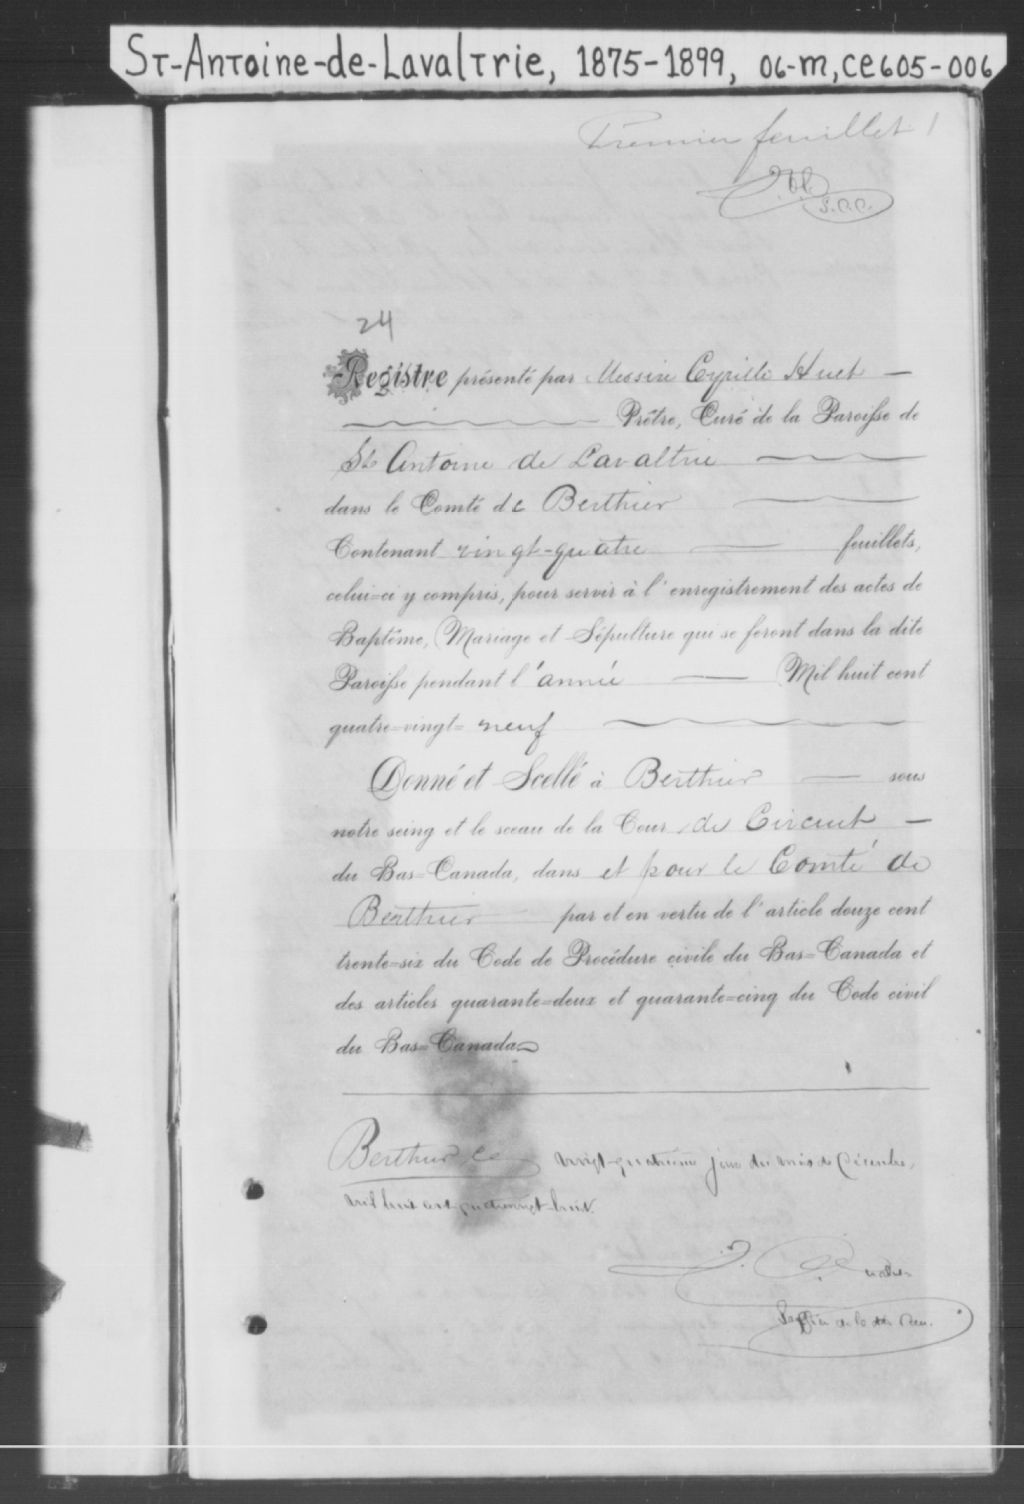 ST-Antoine-de-Lavaltrie, 1875-1899, 06-M, CE605-006
Premier feuillet 1
24
Registre présenté par Messire Cyrille Huet —
Prêtre, Curé de la Paroisse de
St Antoine de Lavaltrie
dans le Comté de Berthier
Contenant vingt-quatre — feuillets,
celui=ci y compris, pour servir à l'enregistrement des actes de
Baptême, Mariage et Sépulture qui se feront dans la dite
Paroisse pendant l'année — Mil huit cent
quatre=vingt=neuf
Donné et Scellé à Berthier — sous
notre seing et le sceau de la Cour de Circuit —
du Bas=Canada, dans et pour le Comté de
Berthier par et en vertu de l'article douze cent
trente=six du Code de Procédure civile du Bas=Canada et
des articles quarante=deux et quarante=cinq du Code civil
du Bas=Canada
Berthier ce vingt-quatrième jour du mois de Décembre,
mil huit cent quatrevingt-huit.